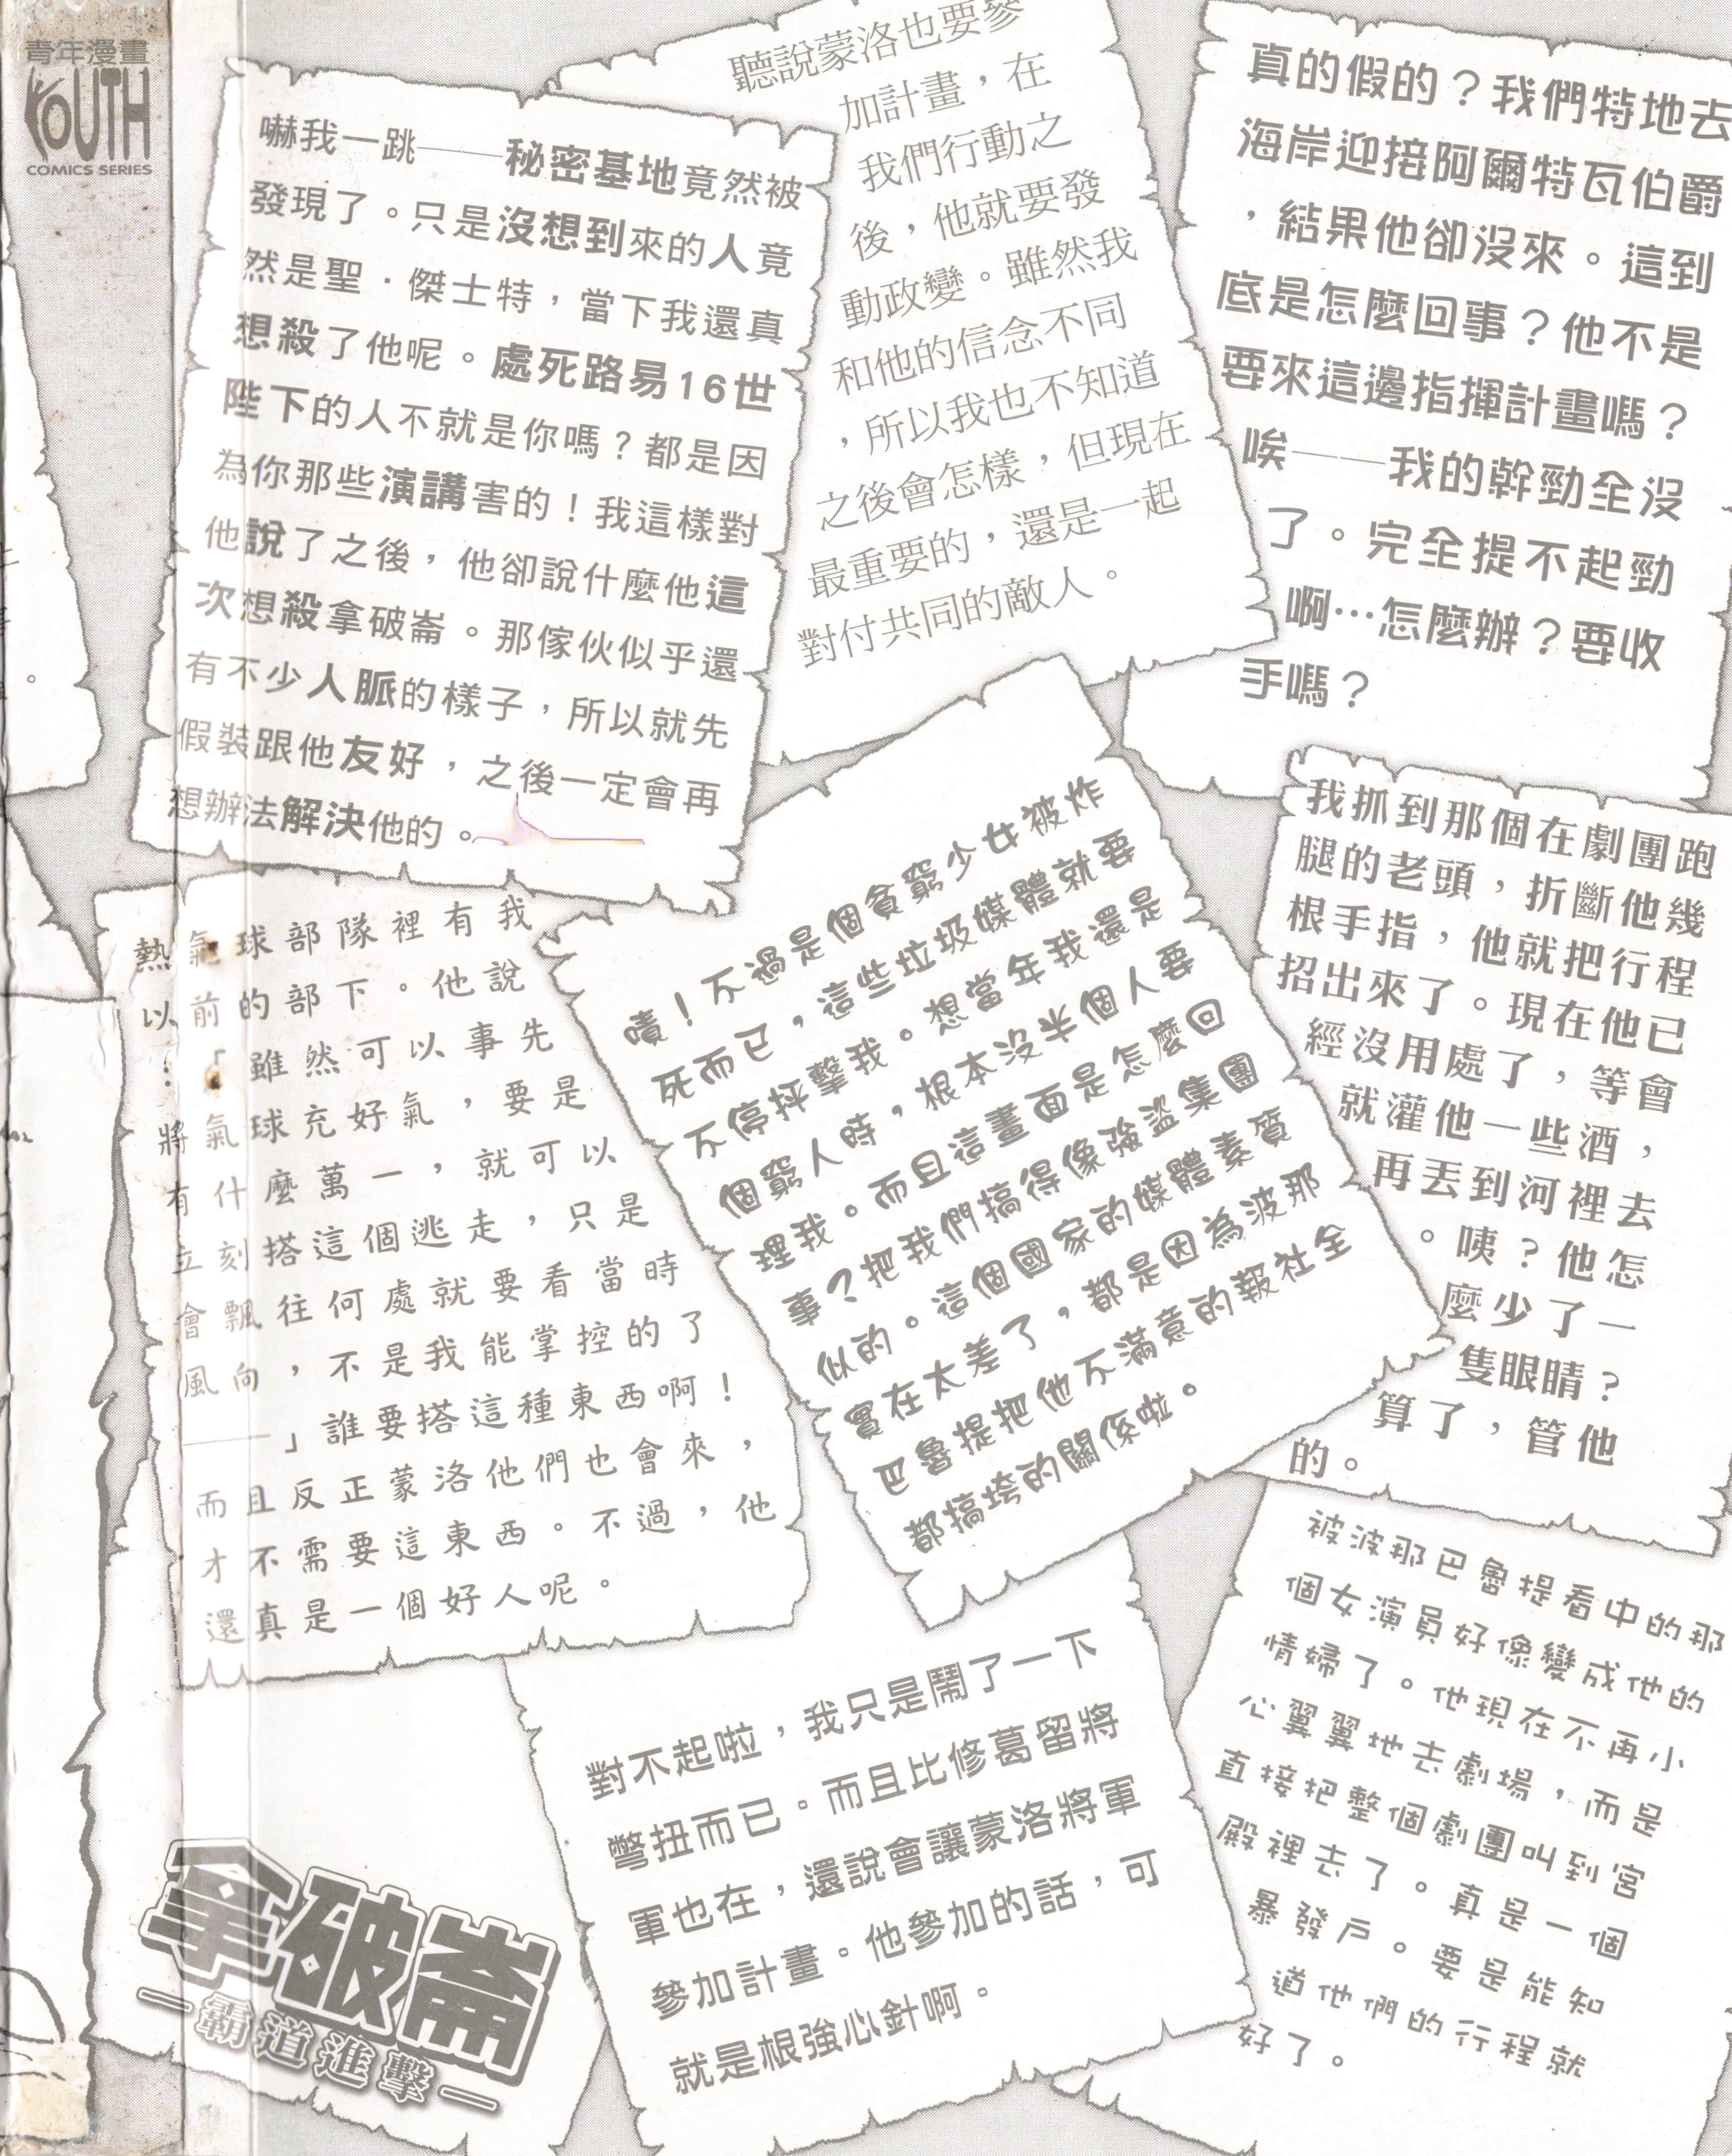 青年漫畫
YOUTH
COMICS SERIES
嚇我一跳——秘密基地竟然被
發現了。只是沒想到來的人竟
然是聖．傑士特，當下我還真
想殺了他呢。處死路易16世
陛下的人不就是你嗎？都是因
為你那些演講害的！我這樣對
他說了之後，他卻說什麼他這
次想殺拿破崙。那傢伙似乎還
有不少人脈的樣子，所以就先
假裝跟他友好，之後一定會再
想辦法解決他的。
聽說蒙洛也要參
加計畫，在
我們行動之
後，他就要發
動政變。雖然我
和他的信念不同
，所以我也不知道
之後會怎樣，但現在
最重要的，還是一起
對付共同的敵人。
真的假的？我們特地去
海岸迎接阿爾特瓦伯爵
，結果他卻沒來。這到
底是怎麼回事？他不是
要來這邊指揮計畫嗎？
唉——我的幹勁全沒
了。完全提不起勁
啊…怎麼辦？要收
手嗎？
熱氣球部隊裡有我
以前的部下。他說
：「雖然可以事先
將氣球充好氣，要是
有什麼萬一，就可以
立刻搭這個逃走，只是
會飄往何處就要看當時
風向，不是我能掌控的了
——」誰要搭這種東西啊！
而且反正蒙洛他們也會來，
才不需要這東西。不過，他
還真是一個好人呢。
嘖！不過是個貧窮少女被炸
死而已，這些垃圾媒體就要
不停抨擊我。想當年我還是
個窮人時，根本沒半個人要
理我。而且這畫面是怎麼回
事？把我們搞得像強盜集團
似的。這個國家的媒體素質
實在太差了，都是因為波那
巴魯提把他不滿意的報社全
都搞垮的關係啦。
我抓到那個在劇團跑
腿的老頭，折斷他幾
根手指，他就把行程
招出來了。現在他已
經沒用處了，等會
就灌他一些酒，
再丟到河裡去
。咦？他怎
麼少了一
隻眼睛？
算了，管他
的。
對不起啦，我只是鬧了一下
彆扭而已。而且比修葛留將
軍也在，還說會讓蒙洛將軍
參加計畫。他參加的話，可
就是根強心針啊。
被波那巴魯提看中的那
個女演員好像變成他的
情婦了。他現在不再小
心翼翼地去劇場，而是
直接把整個劇團叫到宮
殿裡去了。真是一個
暴發戶。要是能知
道他們的行程就
好了。
拿破崙
—霸道進擊—